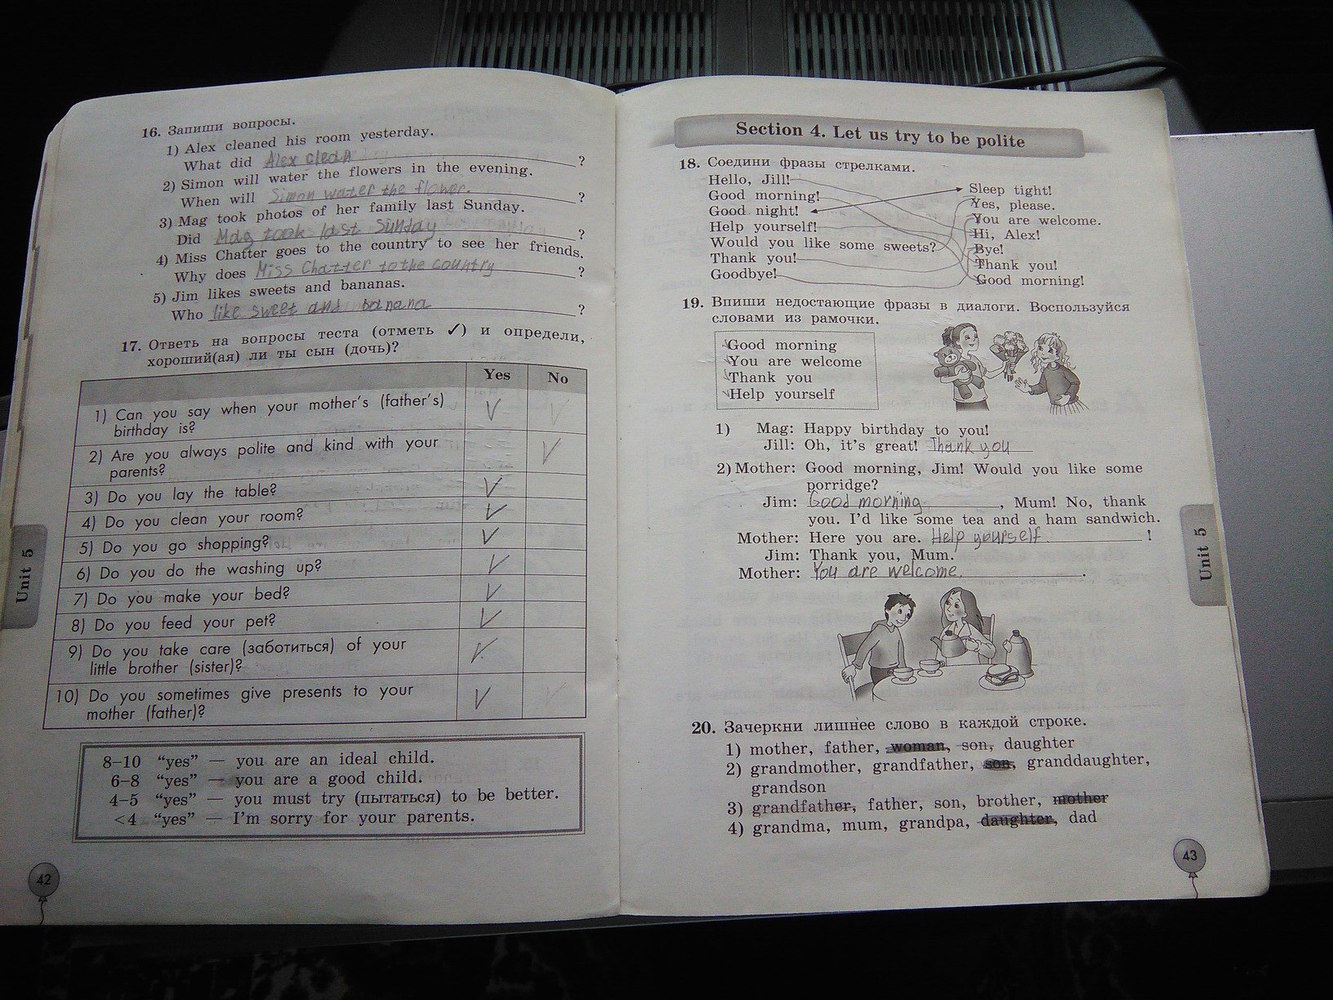 16. Запиши вопросы.
1) Alex cleaned his room yesterday.
What did Alex clean ?
2) Simon will water the flowers in the evening.
When will Simon water the flower. ?
3) Mag took photos of her family last Sunday.
Did Mag took last Sunday ?
4) Miss Chatter goes to the country to see her friends.
Why does Miss Chatter to the country ?
5) Jim likes sweets and bananas.
Who like sweet and banana ?
17. Ответь на вопросы теста (отметь ✓) и определи,
хороший(ая) ли ты сын (дочь)?
Yes No
1) Can you say when your mother's (father's)
birthday is?
2) Are you always polite and kind with your
parents?
3) Do you lay the table?
4) Do you clean your room?
5) Do you go shopping?
6) Do you do the washing up?
7) Do you make your bed?
8) Do you feed your pet?
9) Do you take care (заботиться) of your
little brother (sister)?
10) Do you sometimes give presents to your
mother (father)?
8–10 “yes” — you are an ideal child.
6–8 “yes” — you are a good child.
4–5 “yes” — you must try (пытаться) to be better.
<4 “yes” — I'm sorry for your parents.
Unit 5
42
Section 4. Let us try to be polite
18. Соедини фразы стрелками.
Hello, Jill!
Good morning!
Good night!
Help yourself!
Would you like some sweets?
Thank you!
Goodbye!
Sleep tight!
Yes, please.
You are welcome.
Hi, Alex!
Bye!
Thank you!
Good morning!
19. Впиши недостающие фразы в диалоги. Воспользуйся
словами из рамочки.
Good morning
You are welcome
Thank you
Help yourself
1) Mag: Happy birthday to you!
Jill: Oh, it's great! Thank you
2) Mother: Good morning, Jim! Would you like some
porridge?
Jim: Good morning, Mum! No, thank
you. I'd like some tea and a ham sandwich.
Mother: Here you are. Help yourself !
Jim: Thank you, Mum.
Mother: You are welcome.
20. Зачеркни лишнее слово в каждой строке.
1) mother, father, woman, son, daughter
2) grandmother, grandfather, son, granddaughter,
grandson
3) grandfather, father, son, brother, mother
4) grandma, mum, grandpa, daughter, dad
Unit 5
43